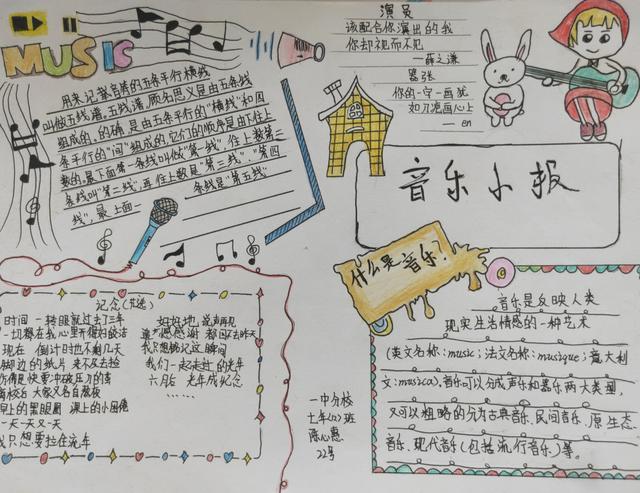 MUSIC
用来记载音符的五条平行横线
叫做五线谱。五线谱,顾名思义是由五条线
组成的。的确,是由五条平行的"横线"和四
条平行的"间"组成的,它们的顺序是由下往上
数的。最下面第一条线叫做"第一线"往上数第二
条线叫"第二线",再往上数是"第三线""第四
线",最上面一条线是"第五线"
演员
该配合你演出的我
你却视而不见
——薛之谦
嚣张
你的一字一画犹
如刀烫画心上
——en
音乐小报
什么是音乐?
音乐是反映人类
现实生活情感的一种艺术
(英文名称:music;法文名称:musique;意大利
文:musica).音乐可以分成声乐和器乐两大类型,
又可以粗略的分为古典音乐、民间音乐、原生态
音乐、现代音乐(包括流行音乐)等。
记念(节选)
时间 一转眼就过去了三年
一切都在我心里开得好皎洁
现在 倒计时也不剩几天
脚边的纸片 来不及去捡
快要冲破压力的茧
离校后 大家又各自散板
早上的黑眼圈 课上的小困倦
一天一天又一天
只想要拉住流年
好好地,说声再见
遗憾感谢 都回去昨天
我只想铭记这瞬间
我们一起走过的光年
六月后 光年成纪念
……
一中分校
七年(12)班
陈心惠
22号